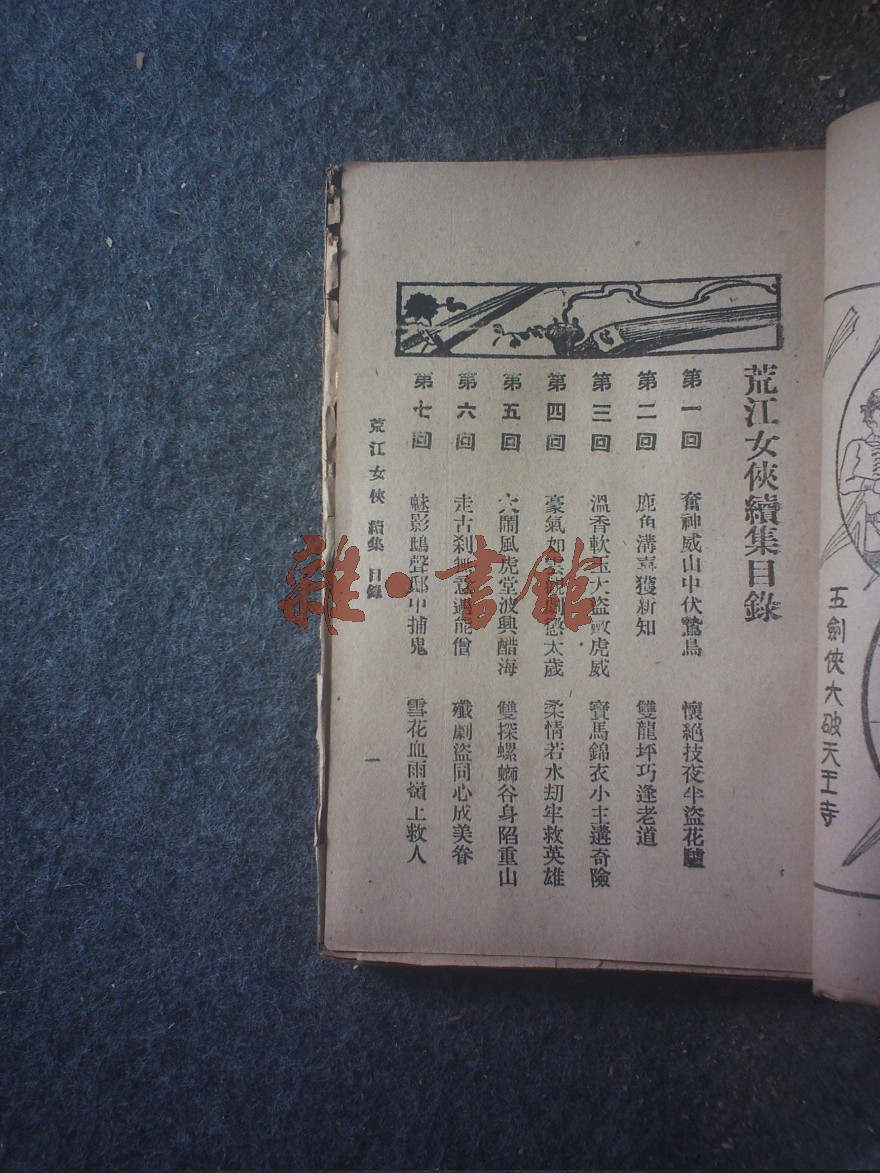 荒江女俠續集目錄
第一回 奮神威山中伏鷙鳥 懷絕技夜半盜花驢
第二回 鹿角溝喜獲新知 雙龍坪巧逢老道
第三回 溫香軟玉大盜斂虎威 寶馬錦衣小主遘奇險
第四回 豪氣如 太歲 柔情若水刼牢救英雄
第五回 大鬧風虎堂波興醋海 雙探螺螄谷身陷重山
第六回 走古刹無意遇能僧 殲劇盜同心成美眷
第七回 魅影鴟聲邸中捕鬼 雪花血雨嶺上救人
荒江女俠 續集 目錄
一
五劍俠大破天王寺
雜·書館